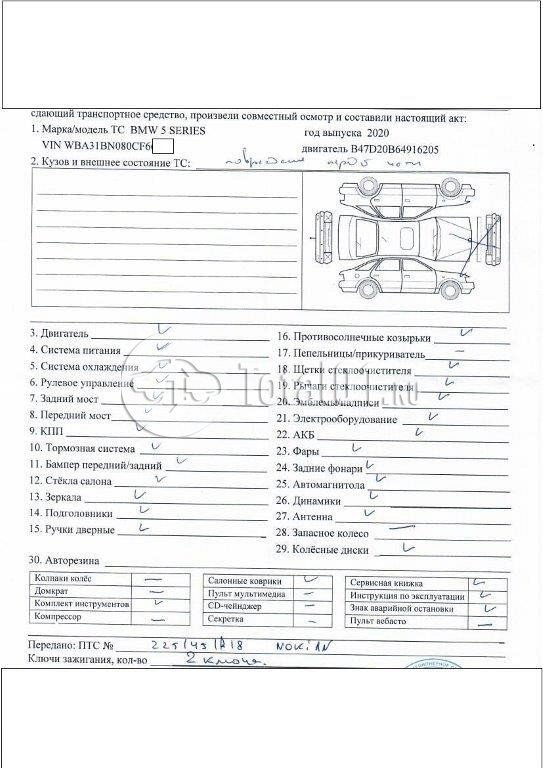 сдающий транспортное средство, произвели совместный осмотр и составили настоящий акт:
1. Марка/модель ТС BMW 5 SERIES год выпуска 2020
VIN WBA31BN080CF6 двигатель B47D20B64916205
2. Кузов и внешнее состояние ТС: повреждение перед части
3. Двигатель ✓
4. Система питания ✓
5. Система охлаждения ✓
6. Рулевое управление ✓
7. Задний мост ✓
8. Передний мост ✓
9. КПП ✓
10. Тормозная система ✓
11. Бампер передний/задний ✓
12. Стёкла салона ✓
13. Зеркала ✓
14. Подголовники ✓
15. Ручки дверные ✓
16. Противосолнечные козырьки ✓
17. Пепельницы/прикуриватель —
18. Щетки стеклоочистителя ✓
19. Рычаги стеклоочистителя ✓
20. Эмблемы/надписи ✓
21. Электрооборудование ✓
22. АКБ ✓
23. Фары ✓
24. Задние фонари ✓
25. Автомагнитола ✓
26. Динамики ✓
27. Антенна ✓
28. Запасное колесо —
29. Колёсные диски ✓
30. Авторезина
Колпаки колёс —
Домкрат —
Комплект инструментов ✓
Компрессор —
Салонные коврики ✓
Пульт мультимедиа —
CD-чейнджер —
Секретка —
Сервисная книжка ✓
Инструкция по эксплуатации ✓
Знак аварийной остановки ✓
Пульт вебасто —
Передано: ПТС № 225/45/R18 NOKIAN
Ключи зажигания, кол-во 2 ключа.